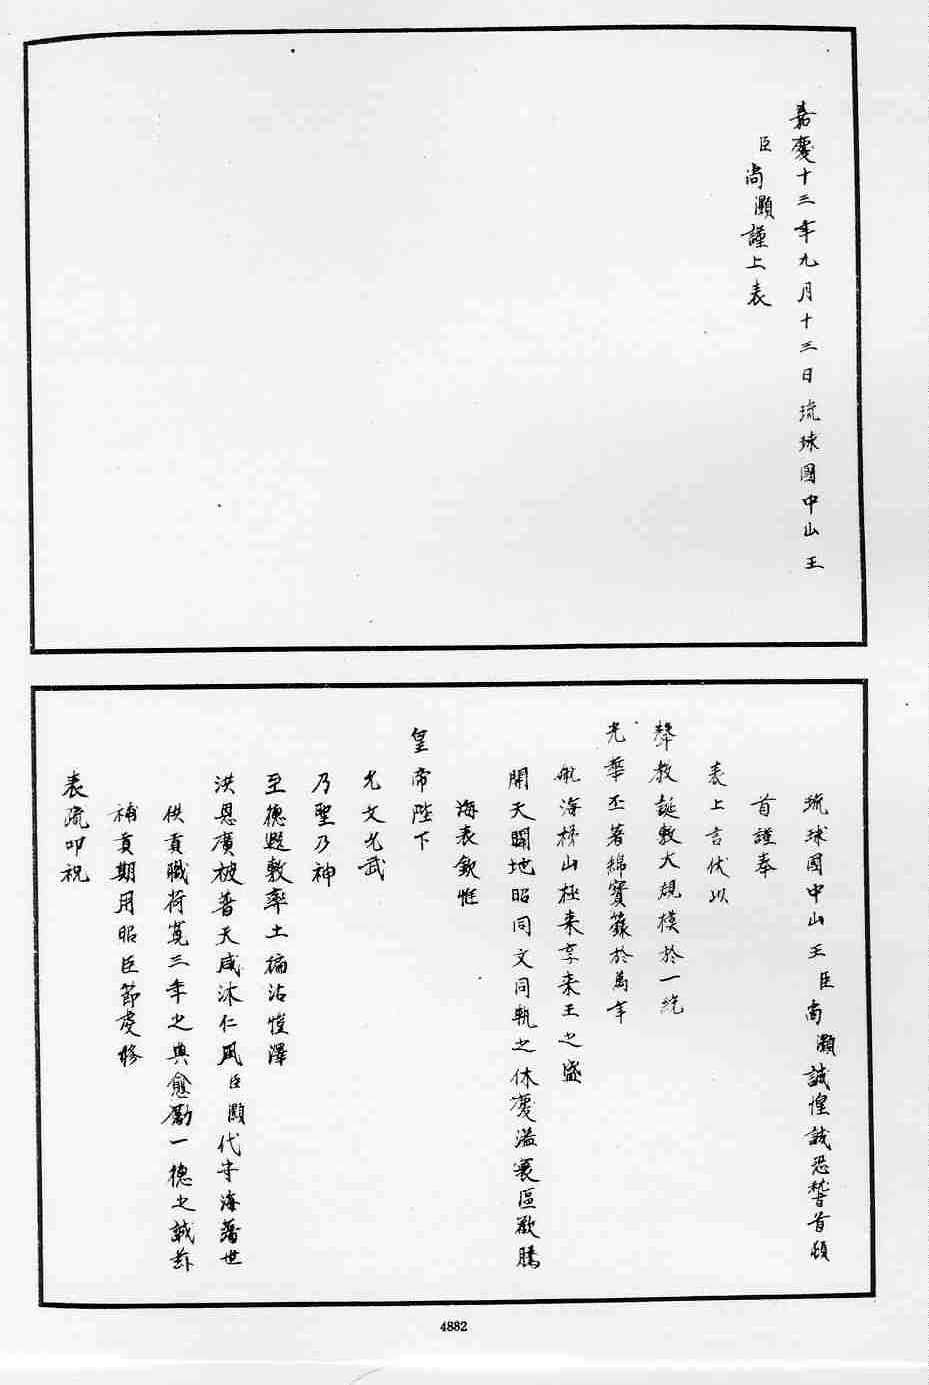 嘉慶十三年九月十三日琉球國中山王
臣尚灝謹上表
琉球國中山王臣尚灝誠惶誠恐稽首頓
首謹奉
表上言伏以
聲教誕敷大規模於一統
光華丕著綿寶籙於萬年
航海梯山極來享來王之盛
開天闢地昭同文同軌之休慶溢寰區歡騰
海表欽惟
皇帝陛下
允文允武
乃聖乃神
至德遐敷率土徧沾愷澤
洪恩廣被普天咸沐仁風臣灝代守海藩世
供貢職荷寬三年之典愈勵一德之誠茲
補貢期用昭臣節虔修
表疏叩祝
4882